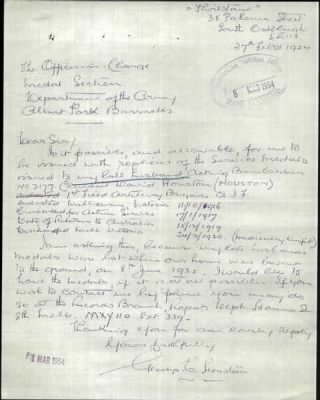 38 Paloma Street
South Oakleigh
S E 13
27th Feb 1954
8 MAR 1954
The Officer in Charge
Medal Section
Department of the Army
Albert Park Barracks
Dear Sir/
Is it possible, and allowable, for me to
be issued with replicas of the Service medals
issued to my late husband Acting Bombardier
No 3197 David Houston (HOUSTON)
1st Field Artillery Brigade A I F
enlisted Melbourne, Victoria 11/10/1916
Embarked for Active Service 17/1/1917
to Australia
Discharged Melb Victoria (medically unfit)
I am asking this, because my late husbands
medals were lost when our home was burned
to the ground, on 8th June 1932. I would like to
have the medals, if it is at all possible. If you
wish to contact me by phone you may do
so at the Records Branch, Repat. Dept
Melb. MXY110 Ext. 339.
Thanking you for an early reply
Yours faithfully
1 MAR 1954